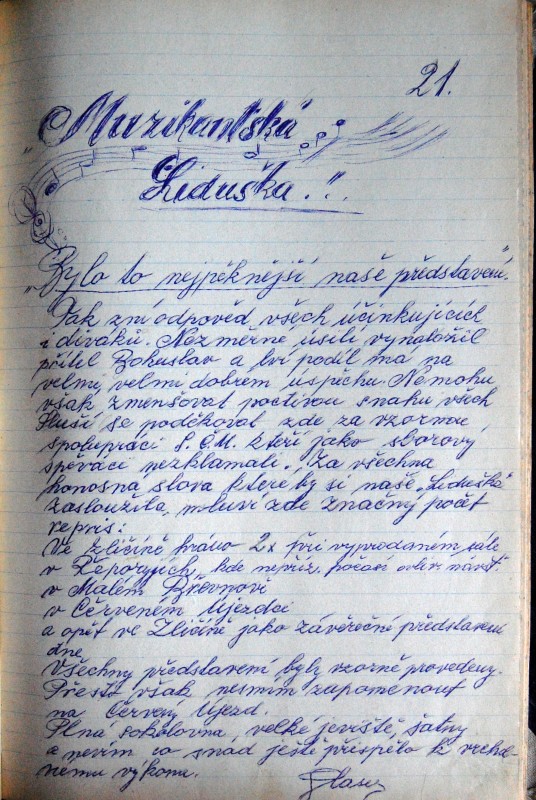 21.
„Muzikantská
Liduška."
„Bylo to nejpěknější naše představení."
Tak zní odpověď všech účinkujících
i diváků. Nezměrné úsilí vynaložil
přítel Bohuslav a lví podíl má na
velmi, velmi dobrém úspěchu. Nemohu
však zmenšovat poctivou snahu všech
Sluší se poděkovat zde za vzornou
spolupráci S.Č.M. kteří jako sborový
spěváci nezklamali. Za všechna
honosná slova které by si naše „Liduška"
zasloužila, mluví zde značný počet
repris:
Ve Zličíně hráno 2x při vyprodaném sále
v Řeporyjích, kde nepřízn. počasí ovliv. návšt.
v Malém Břevnově
v Červeném Újezdci
a opět ve Zličíně jako závěročné představení
dne
Všechny představení byly vzorně provedeny.
Přesto však nesmím zapomenout
na Červený Újezd.
Plná sokolovna, velké jeviště, šatny
a nevím co snad ještě přispělo k vrchol-
nému výkonu.